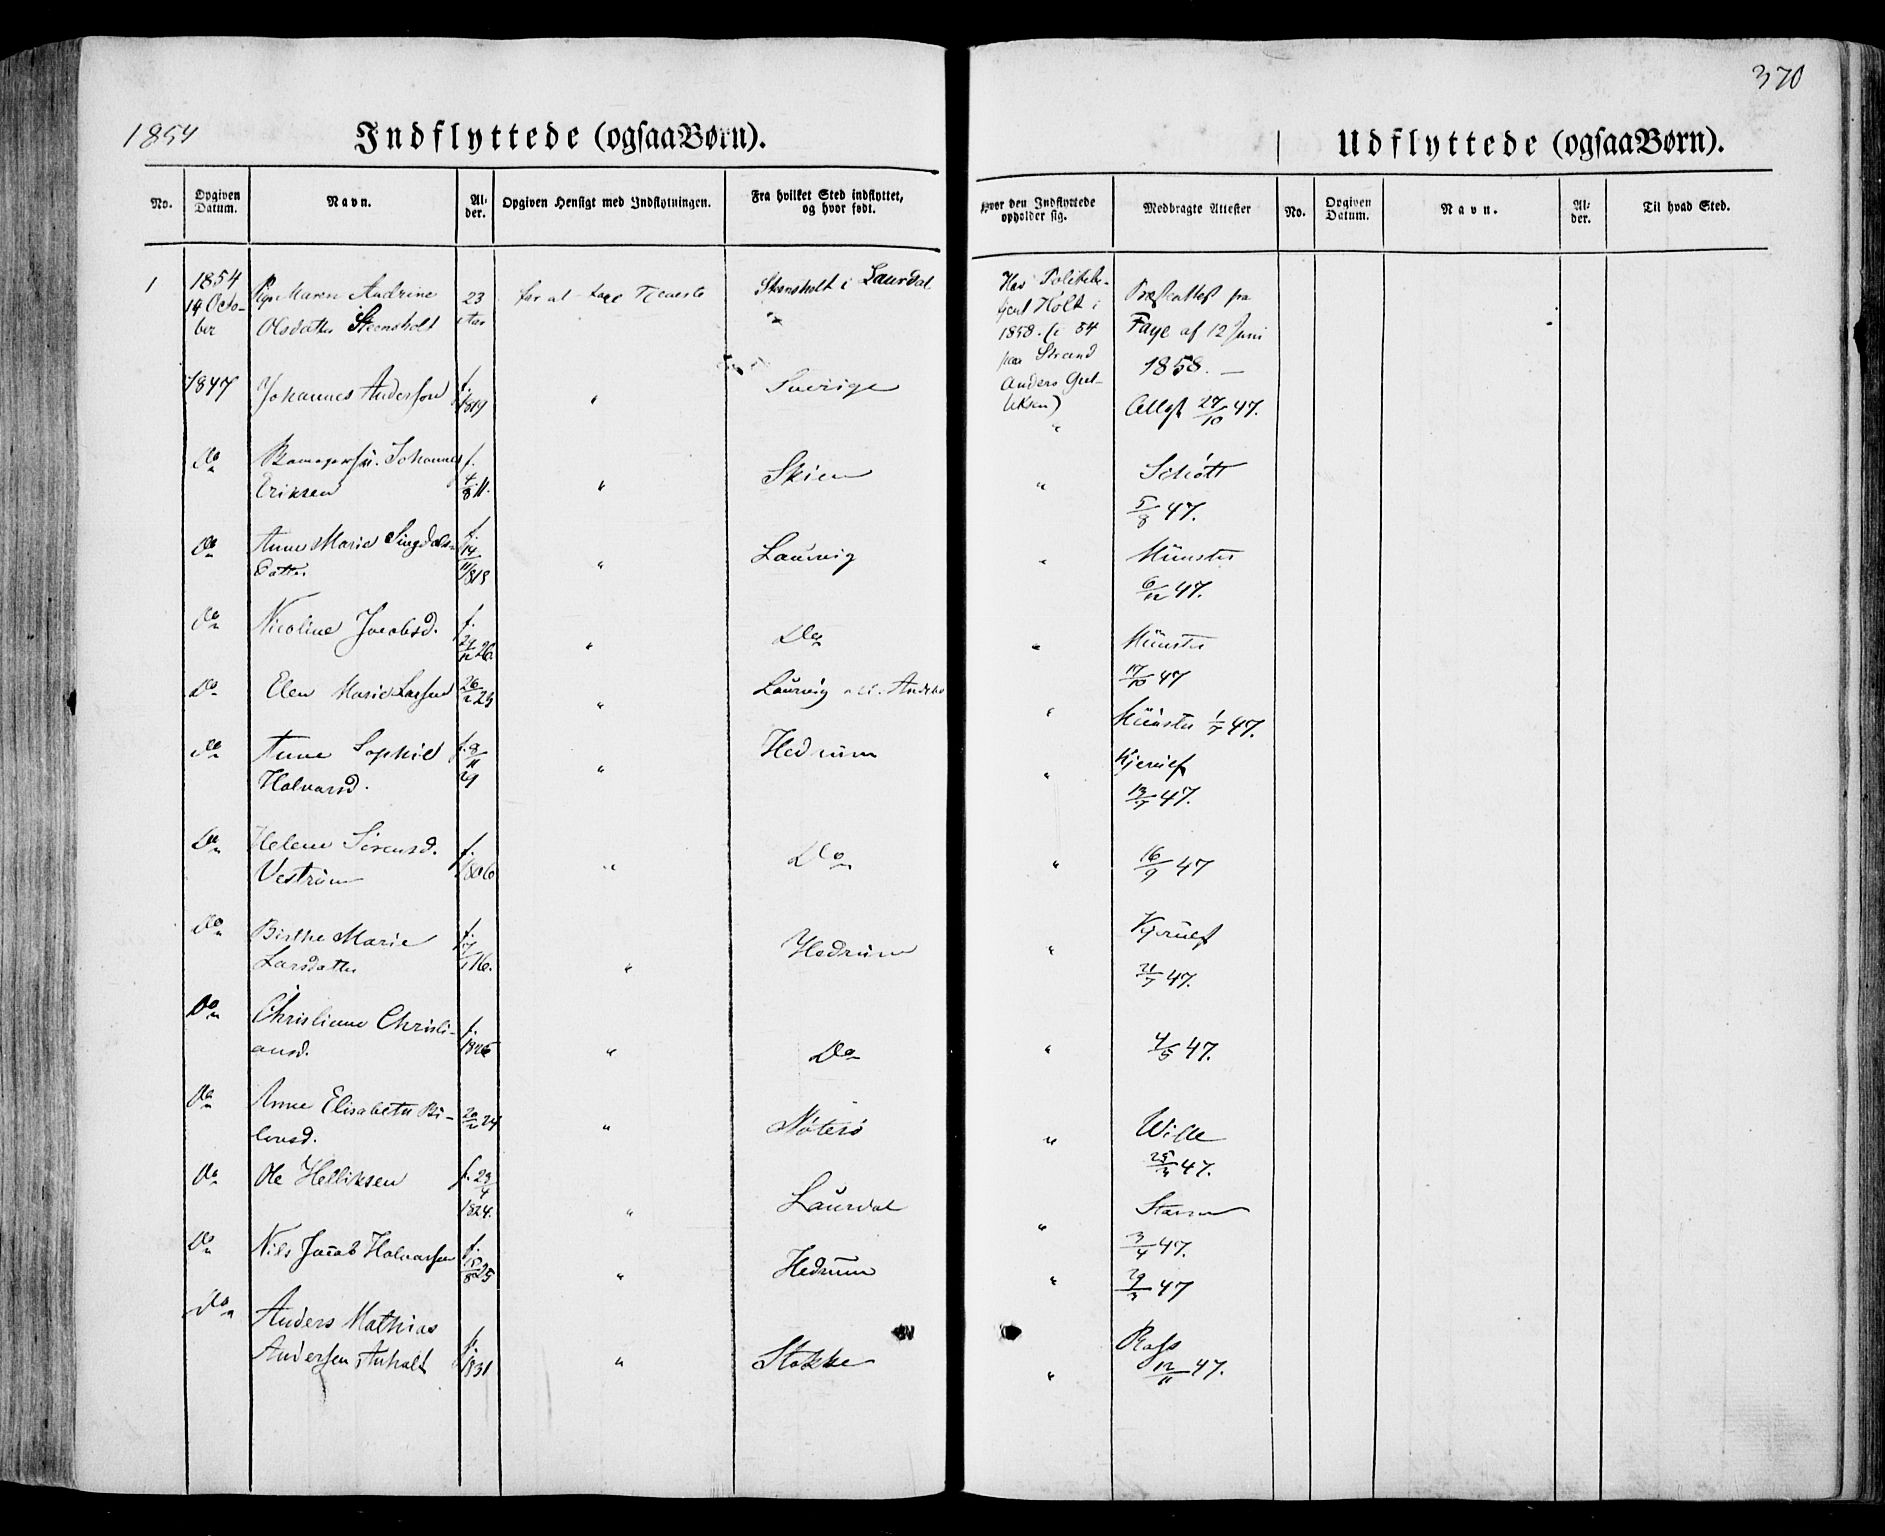 370
1854
Indflyttede (ogsaa Børn).
Udflyttede (ogsaa Børn).
No.
Opgiven Datum.
Navn.
Alder.
Opgiven Hensigt med Indflytningen.
Fra hvilket Sted indflyttet, og hvor født.
Hvor den Indflyttede opholder sig.
Medbragte Attester
No.
Opgiven Datum.
Navn.
Alder.
Til hvad Sted.
1
1854
19 Octo-
ber
Pige Maren Andrine
Olsdatter Steensholt
23
for at tage Tjeneste
Steensholt i Laurdal
Hos Politibe-
tjent Holt i
1858. (i 54
paa Strand
Anders Gul-
liksen)
Præsteattest fra
Faye af 12 Juni
1858. —
1847
Johannes Anderson
f.
1819
"
Sverige
"
Attest 27/10 47.
Do
Johannes
Eriksen
f.
4/8 11.
"
Skien
"
Schött
5/8 47.
Do
Anne Marie
datter
f.
14/11 1818
"
Laurvig
"
Münster
6/12 47.
Do
Nicoline Jacobsd.
f.
"
Do
"
Münster
17/10 47
Do
Elen Marie Larsen
"
Laurvig
"
Münster 1/7 47.
Do
Anne Sophie
Halvorsd.
f. 8/11
29
"
Hedrum
"
Kjerulf
13/7 47.
Do
Helene Sørensd.
Vestrum
f.
1806
"
Do
"
16/9 47
Do
Birthe Marie
Larsdatter
f.
"
Hedrum
"
Kjerulf
21/7 47.
Do
Christiane Christi-
ansd.
f.
1826
"
Do
"
4/5 47.
Do
Anne Elisabeth
"
Nøterø
"
Wille
25/3 47.
Do
Ole Helliksen
f. 23/4
1824.
"
Laurdal
"
3/4 47.
Do
Nils Jacob Halvorsen
f.
15/8 25
"
Hedrum
"
29/3 47
Do
Anders Mathias
Andersen Anholt
f.
1831
"
Stokke
"
Rass
12/11 47.